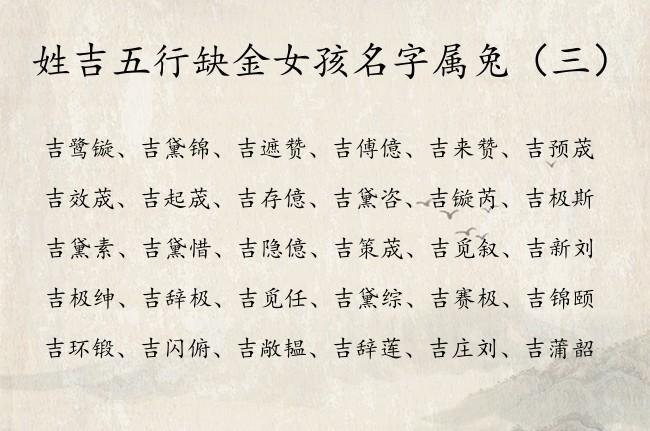 姓吉五行缺金女孩名字属兔（三）
吉鹭镟、吉黛锦、吉遮赞、吉傅億、吉来赞、吉预荿
吉效荿、吉起荿、吉存億、吉黛咨、吉镟芮、吉极斯
吉黛素、吉黛惜、吉隐億、吉策荿、吉觅叙、吉新刘
吉极绅、吉辞极、吉觅任、吉黛综、吉赛极、吉锦颐
吉环锻、吉闪俯、吉敞韫、吉辞莲、吉庄刘、吉蒲韶